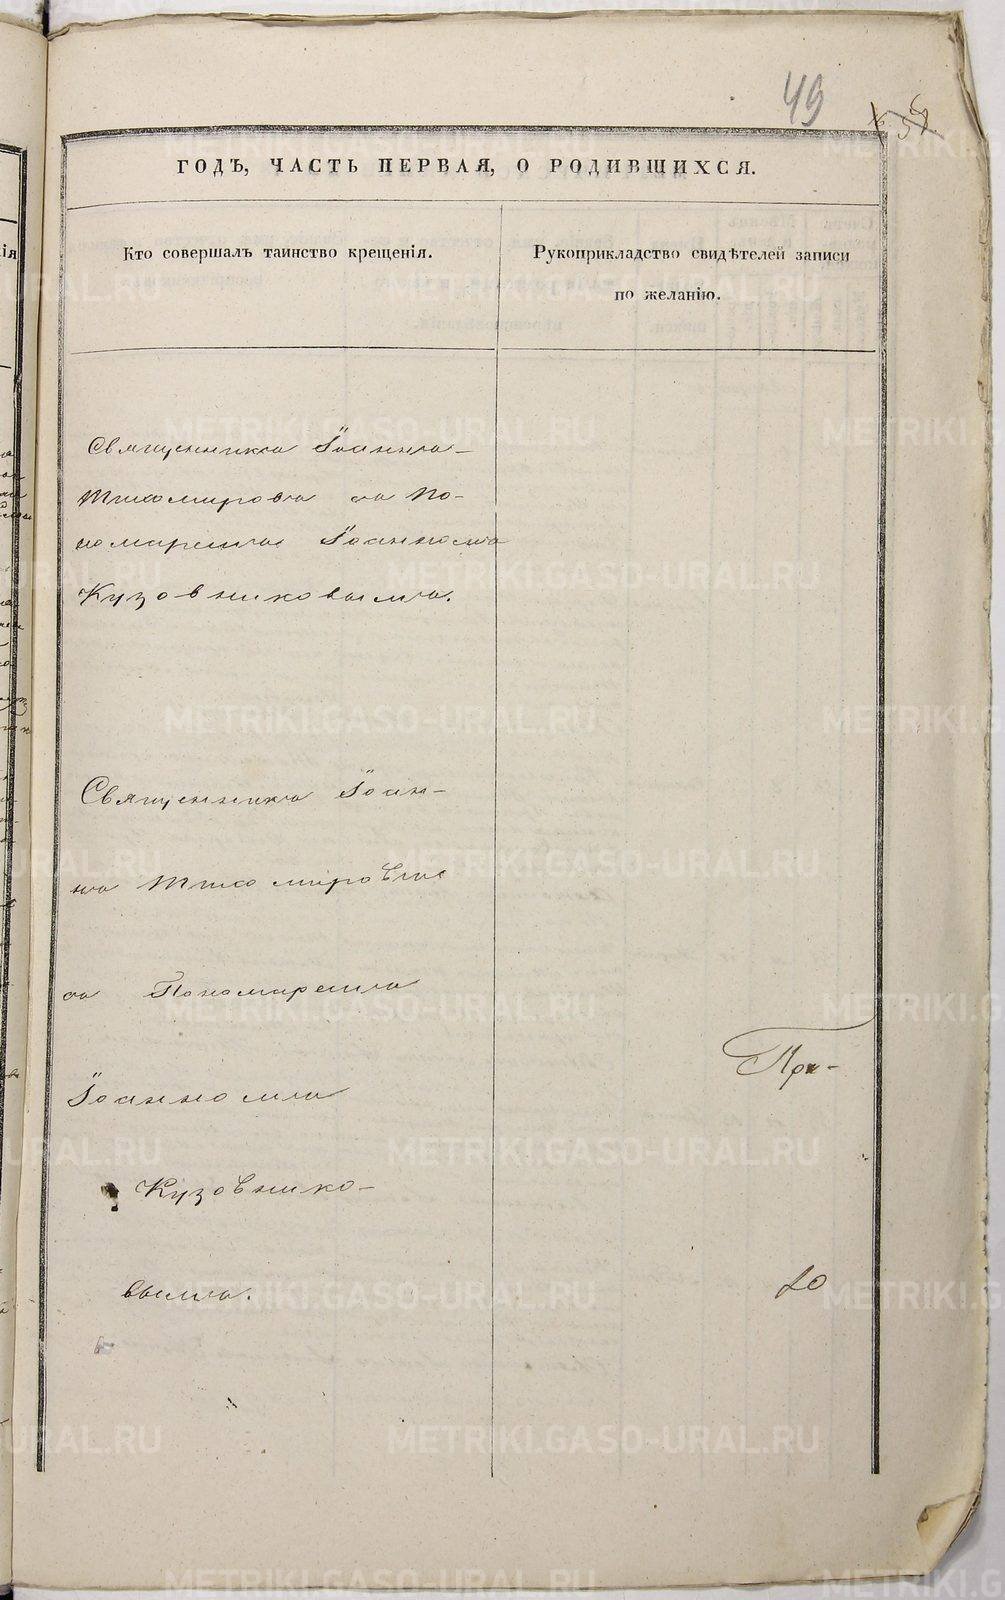 49
ГОДЪ, ЧАСТЬ ПЕРВАЯ, О РОДИВШИХСЯ.
Кто совершалъ таинство крещенія.
Рукоприкладство свидѣтелей записи
по желанію.
Священникъ Іоаннъ
Тихомировъ съ По-
номаремъ Іоанномъ
Кузовниковымъ.
Священникъ Іоан-
нъ Тихомировъ
съ Пономаремъ
Іоанномъ
Кузовнико-
вымъ.
При-
METRIKI.GASO-URAL.RU